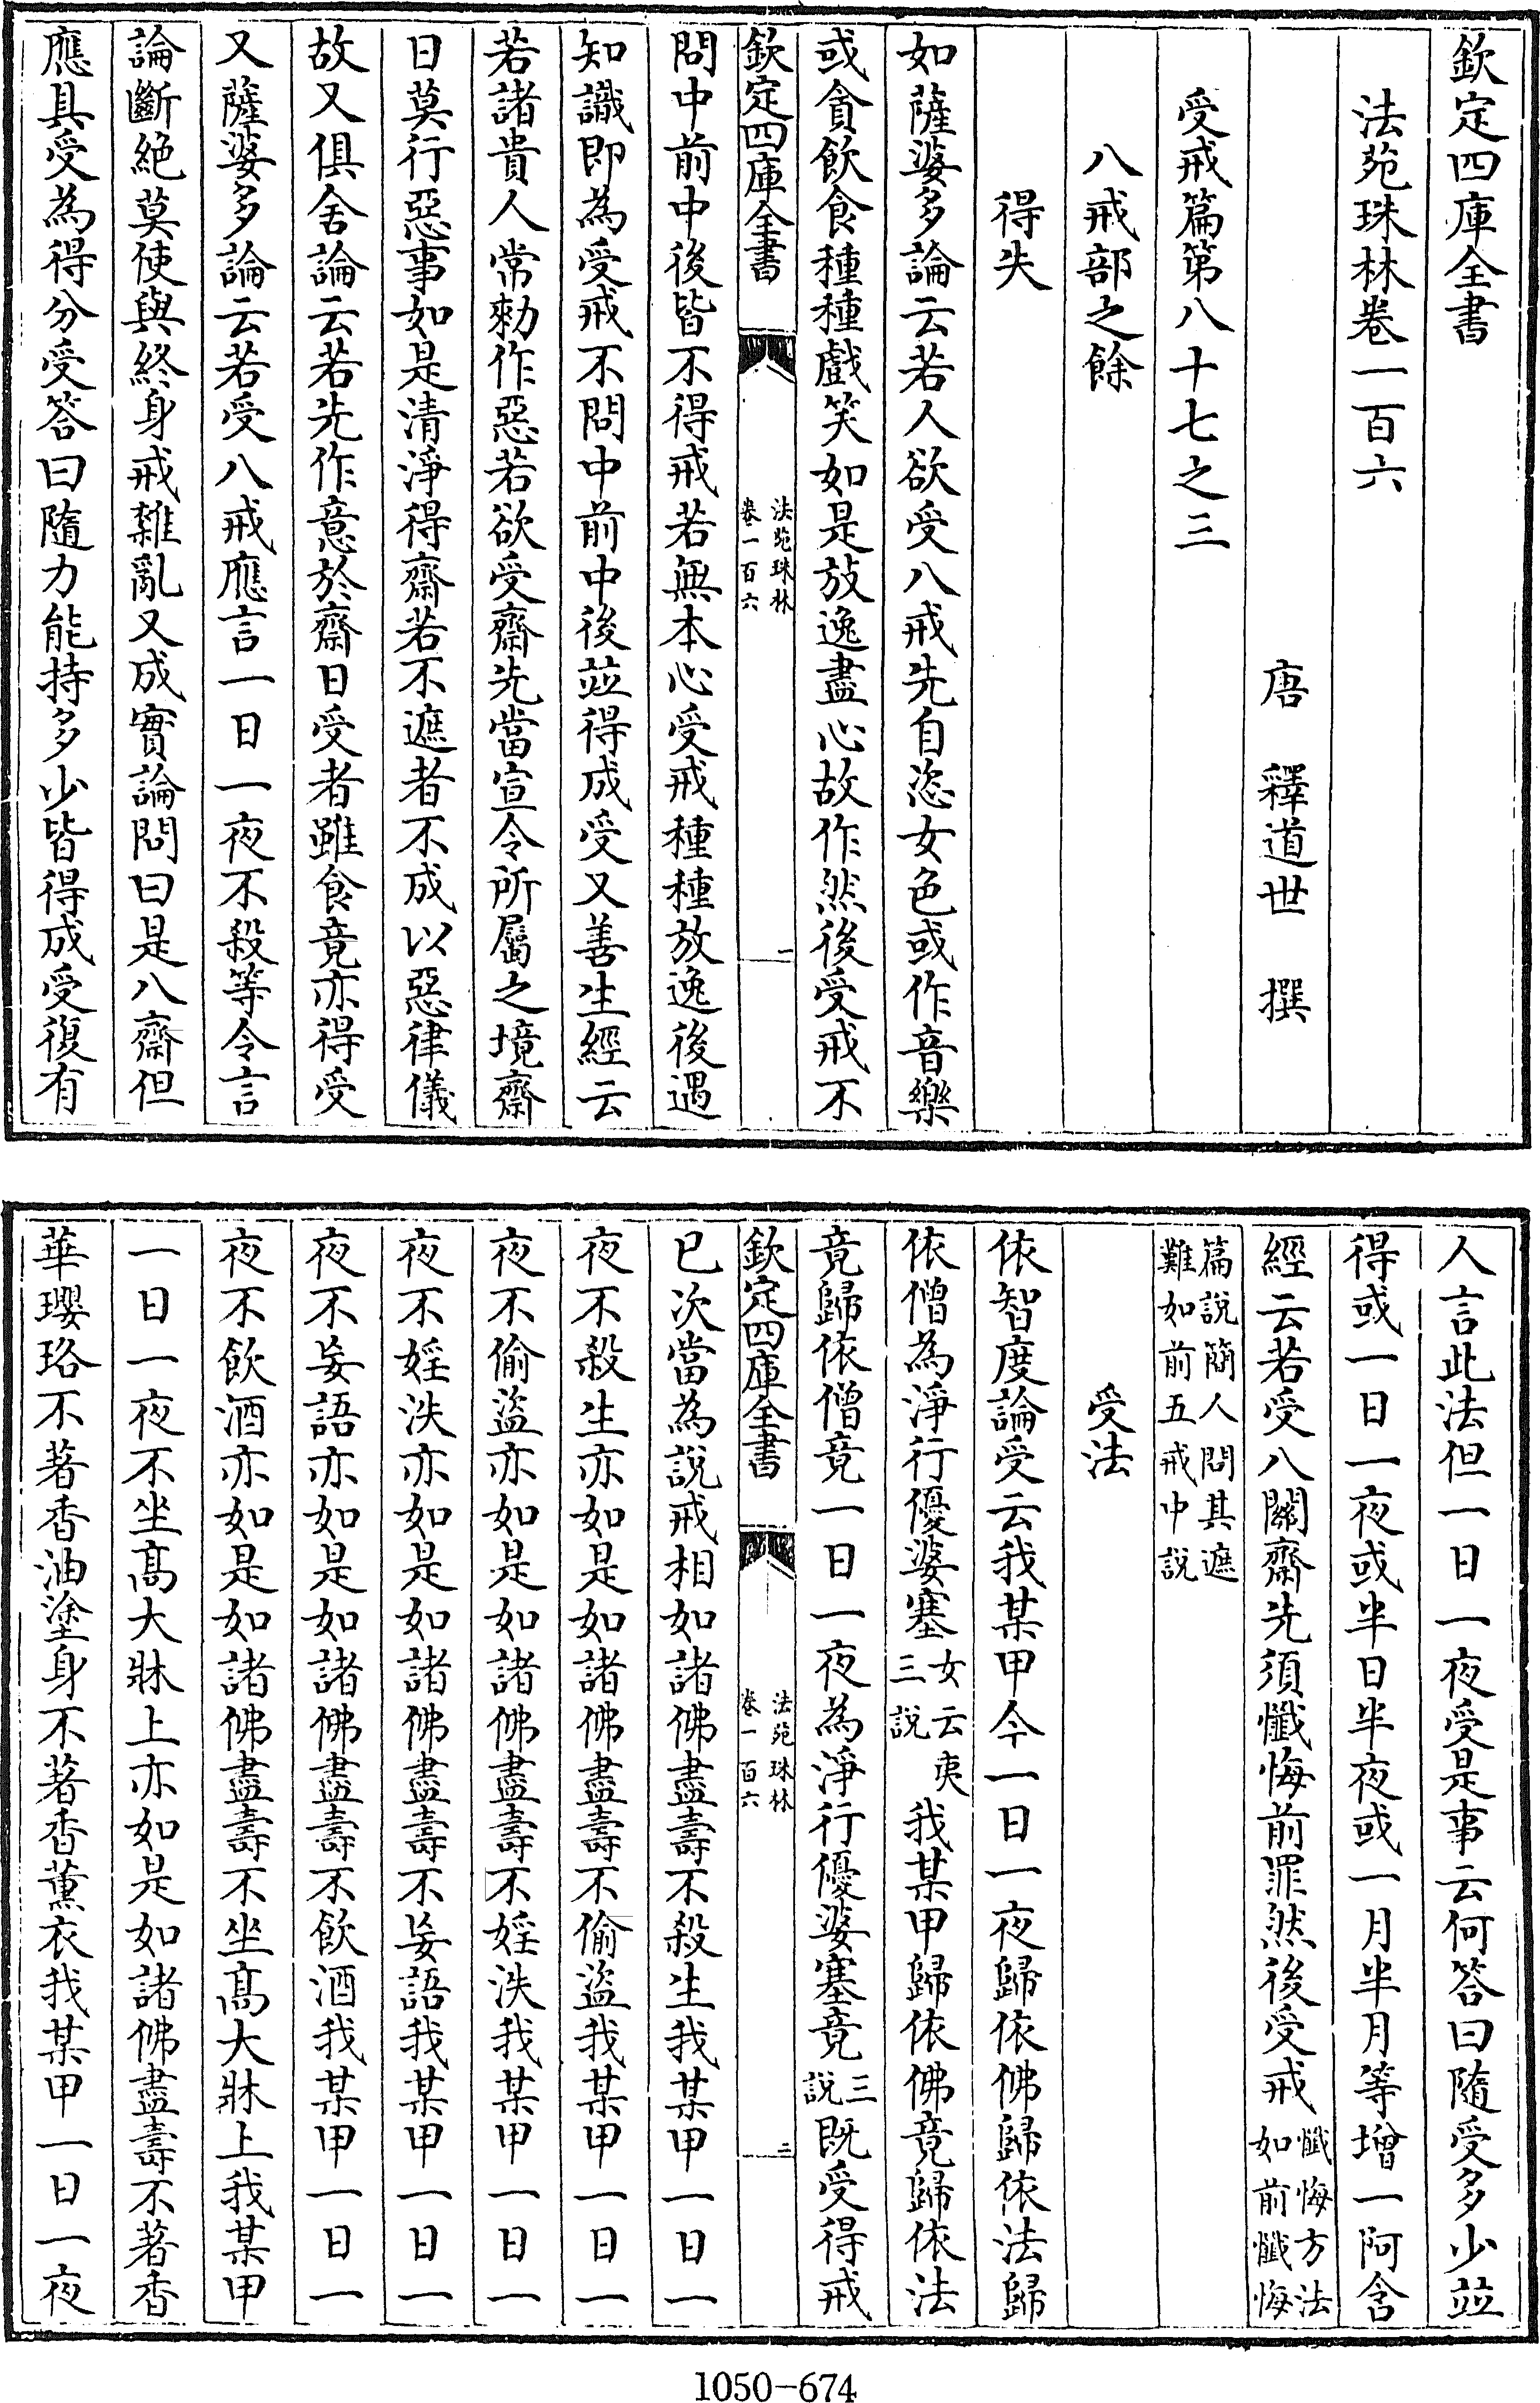 欽定四庫全書
法苑珠林卷一百六
唐　釋道世　撰
受戒篇第八十七之三
八戒部之餘
得失
如薩婆多論云若人欲受八戒先自恣女色或作音樂
或貪飲食種種戲笑如是放逸盡心故作然後受戒不
欽定四庫全書
法苑珠林
卷一百六
一
問中前中後皆不得戒若無本心受戒種種放逸後遇
知識即為受戒不問中前中後並得成受又善生經云
若諸貴人常勅作惡若欲受齋先當宣令所屬之境齋
日莫行惡事如是清淨得齋若不遮者不成以惡律儀
故又俱舍論云若先作意於齋日受者雖食竟亦得受
又薩婆多論云若受八戒應言一日一夜不殺等令言
論斷絕莫使與終身戒雜亂又成實論問曰是八齋但
應具受為得分受答曰隨力能持多少皆得成受復有
人言此法但一日一夜受是事云何答曰隨受多少並
得或一日一夜或半日半夜或一月半月等增一阿含
經云若受八關齋先須懺悔前罪然後受戒懺悔方法如前懺悔
篇說簡人問其遮
難如前五戒中說
受法
依智度論受云我某甲今一日一夜歸依佛歸依法歸
依僧為淨行優婆塞女云夷三說我某甲歸依佛竟歸依法
竟歸依僧竟一日一夜為淨行優婆塞竟三說既受得戒
欽定四庫全書
法苑珠林
卷一百六
二
已次當為說戒相如諸佛盡壽不殺生我某甲一日一
夜不殺生亦如是如諸佛盡壽不偷盜我某甲一日一
夜不偷盜亦如是如諸佛盡壽不婬泆我某甲一日一
夜不婬泆亦如是如諸佛盡壽不妄語我某甲一日一
夜不妄語亦如是如諸佛盡壽不飲酒我某甲一日一
夜不飲酒亦如是如諸佛盡壽不坐高大牀上我某甲
一日一夜不坐高大牀上亦如是如諸佛盡壽不著香
華瓔珞不著香油塗身不著香薰衣我某甲一日一夜
1050-674